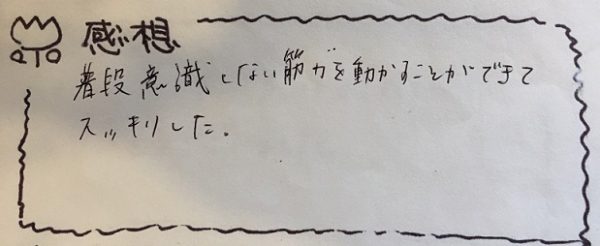 感想
普段意識しない筋力を動かすことができて
スッキリした。